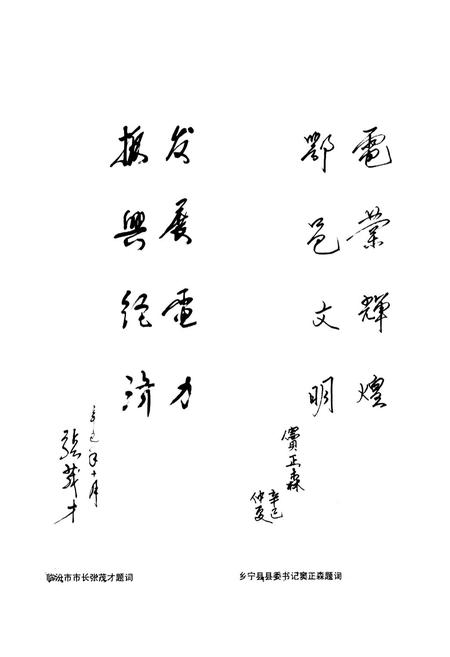 電業輝煌
鄂邑文明
竇正森
辛巳
仲夏
乡宁县县委书记窦正森题词
发展電力
振興经济
辛巳年十月
张茂才
临汾市市长张茂才题词